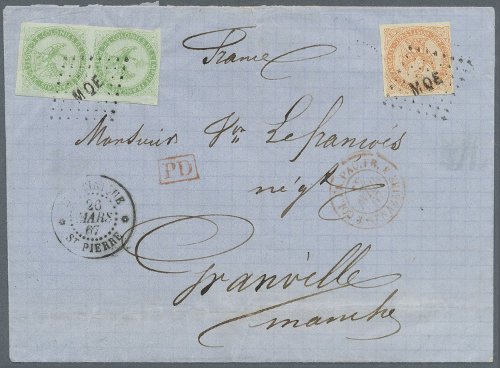 France
MQE
MQE
Monsieur Vor Lefrançois
PD
négt
MARTINIQUE
26
MARS
67
ST PIERRE
Granville
manche